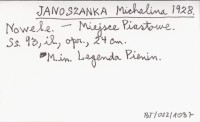 JANOSZANKA Michalina 1928.
Nowele. — Miejsce Piastowe.
Ss. 93, il., opr., 24 cm.
M.in. Legenda Pienin.
BJ/012/1037